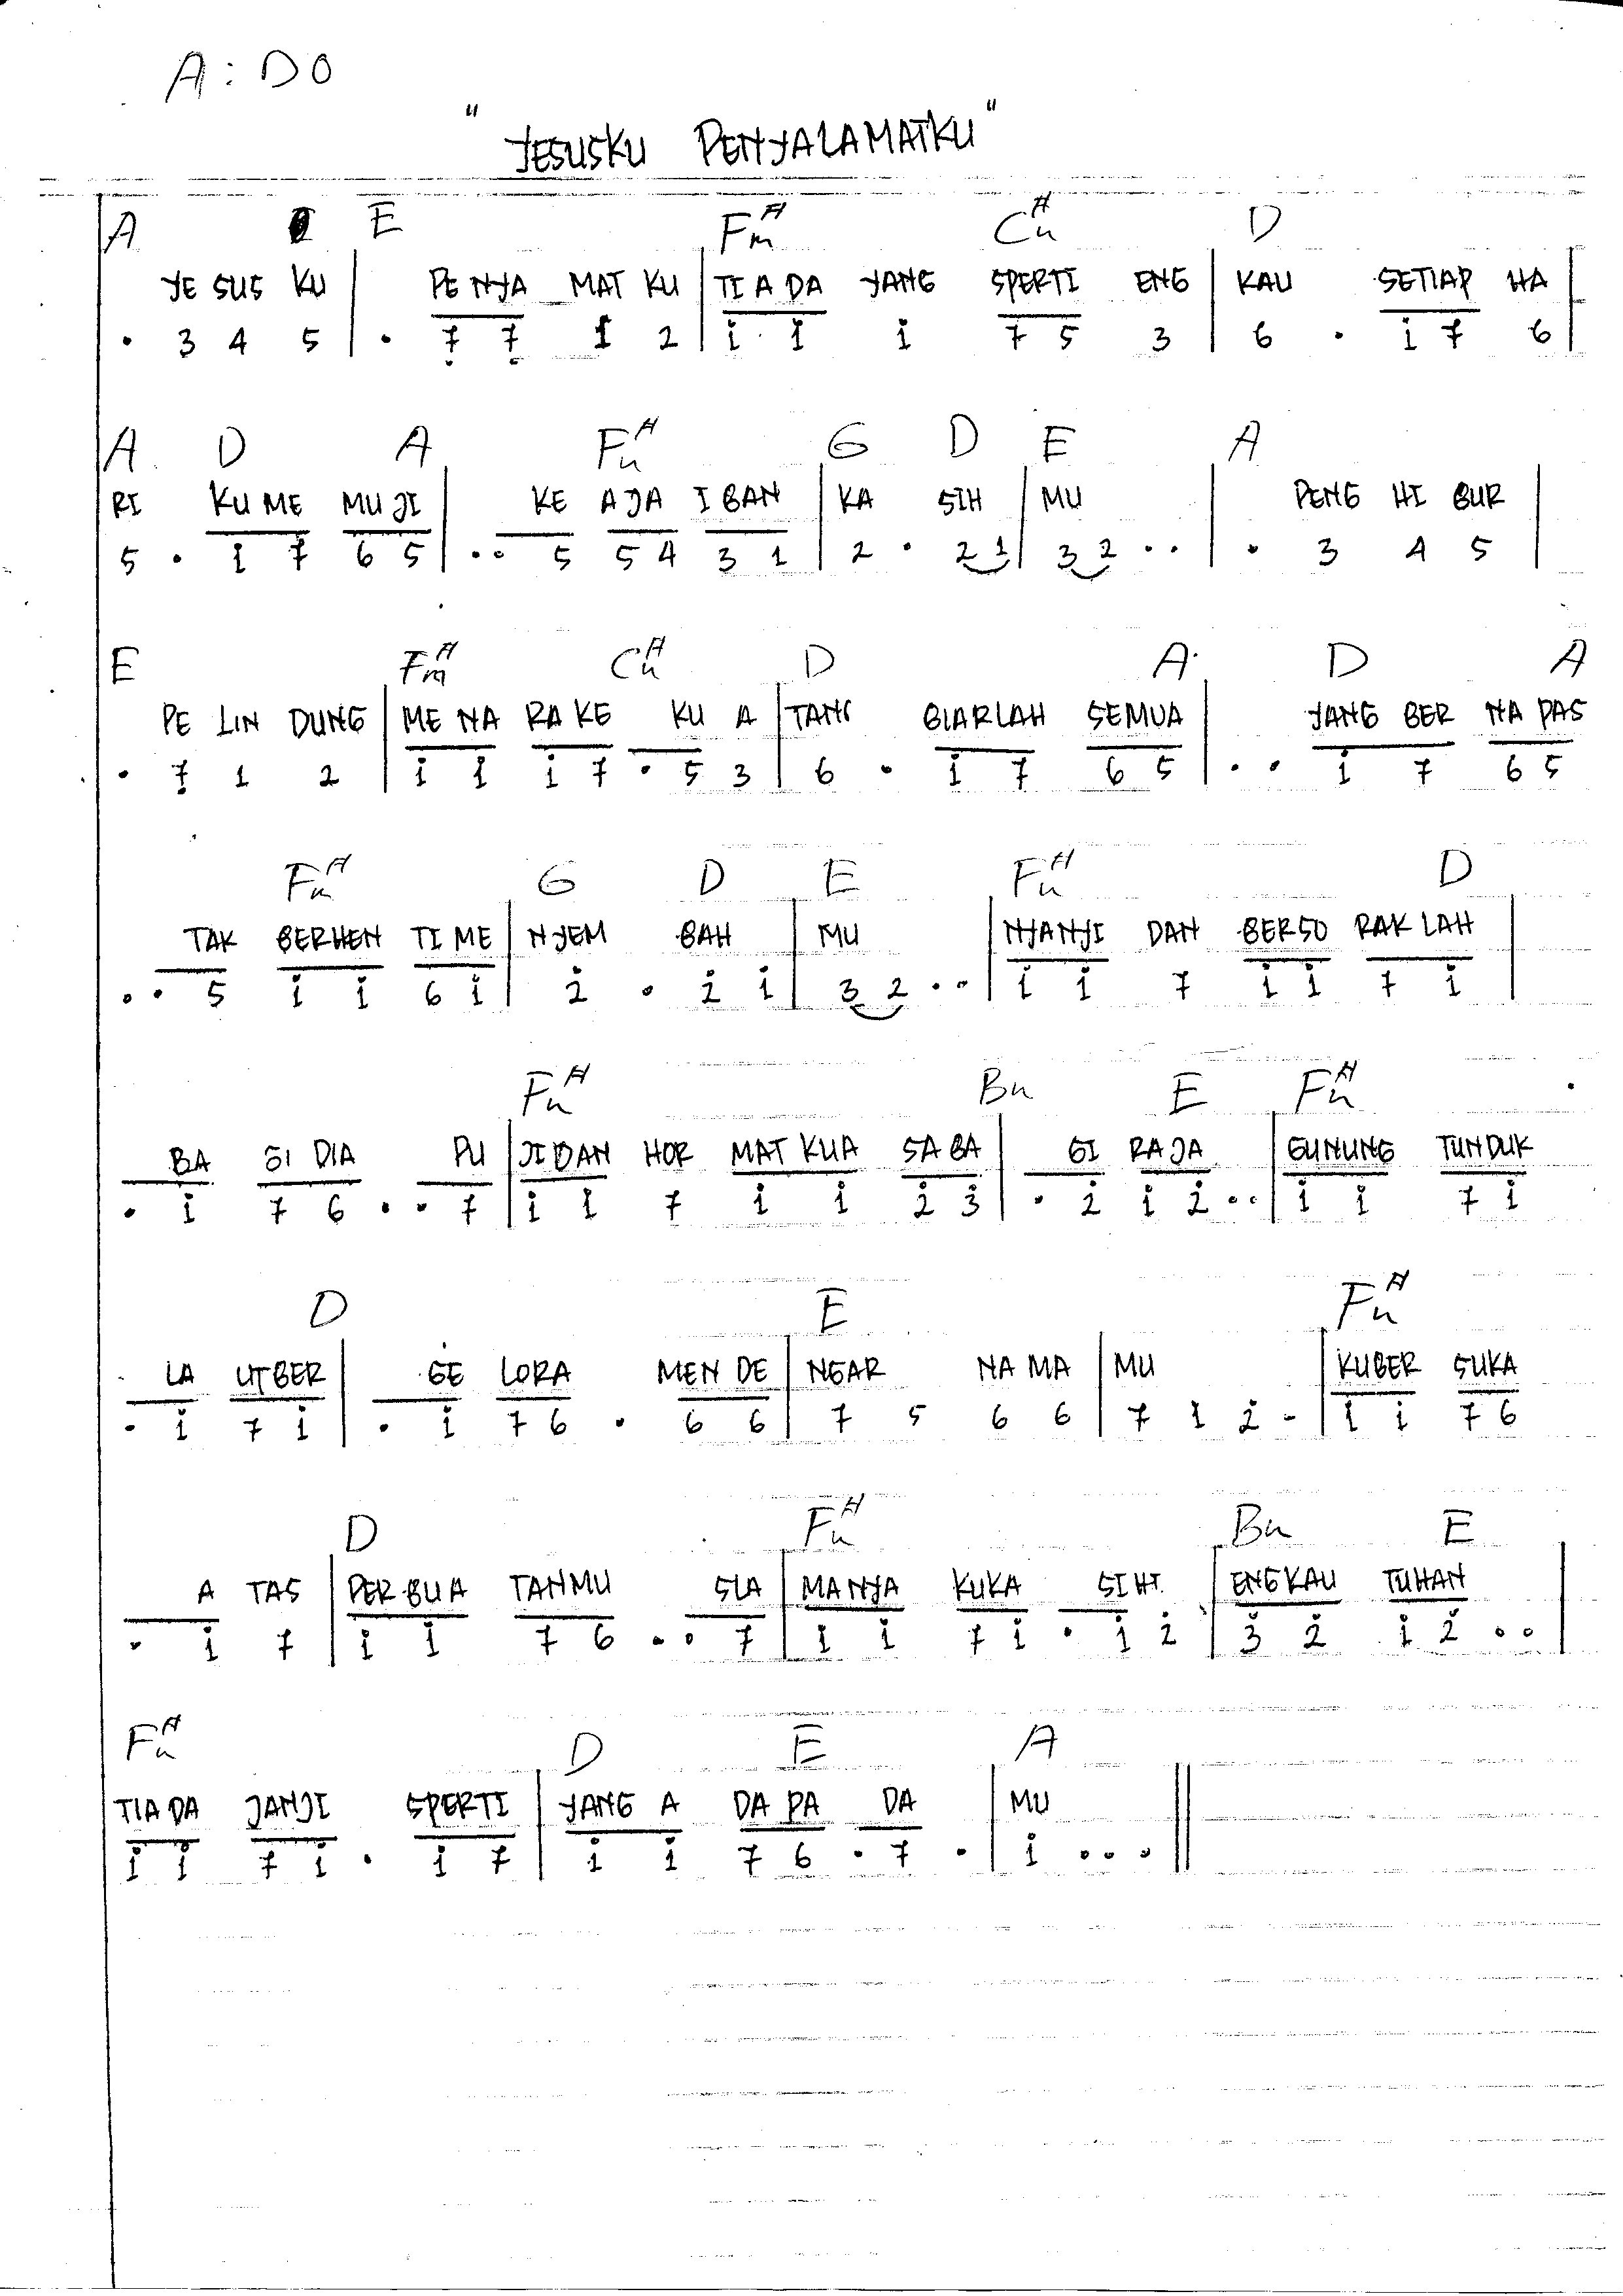 A : DO
" YESUSKU PENYALAMATKU "
A E Fm# Cm# D
YE SUS KU | PE NYA MAT KU | TI A DA YANG SPERTI ENG | KAU SETIAP HA |
. 3 4 5 | . 7̣ 7̣ 1 2 | 1̇ 1̇ 1̇ 7 5 3 | 6 . 1̇ 7 6 |
A D A Fm# G D E A
RI KU ME MUJI | KE AJA I BAN | KA SIH | MU | PENG HI BUR |
5 . 1̇ 7 6 5 | . . 5 5 4 3 1 | 2 . 2 1 | 3 2 . . | . 3 4 5 |
E Fm# Cm# D A D A
PE LIN DUNG | ME NA RA KE KU A | TANG BIARLAH SEMUA | YANG BER NA PAS
. 7̣ 1 2 | 1̇ 1̇ 1̇ 7 . 5 3 | 6 . 1̇ 7 6 5 | . . 1̇ 7 6 5
Fm# G D E Fm# D
TAK BERHEN TI ME | NYEM BAH | MU | NYANYI DAN BERSO RAK LAH |
. . 5 1̇ 1̇ 6 1̇ | 2̇ . 2̇ 1̇ | 3 2 . . | 1̇ 1̇ 7 1̇ 1̇ 7 1̇ |
Fm# Bm E Fm#
BA GI DIA PU | JI DAN HOR MAT KUA SA BA | GI RAJA | GUNUNG TUNDUK
. 1̇ 7 6 . . 7 | 1̇ 1̇ 7 1̇ 1̇ 2̇ 3̇ | . 2̇ 1̇ 2̇ . . | 1̇ 1̇ 7 1̇
D E Fm#
LA UT BER | GE LORA MEN DE | NGAR NA MA | MU | KUBER SUKA
. 1̇ 7 1̇ | . 1̇ 7 6 . 6 6 | 7 5 6 6 | 7 1̇ 2̇ - | 1̇ 1̇ 7 6
D Fm# Bm E
A TAS | PER BUA TANMU SLA | MANYA KUKA SIHI | ENGKAU TUHAN |
. 1̇ 7 | 1̇ 1̇ 7 6 . . 7 | 1̇ 1̇ 7 1̇ . 1̇ 2̇ | 3̇ 2̇ 1̇ 2̇ . . |
Fm# D E A
TIA DA JANJI SPERTI | YANG A DA PA DA | MU ||
1̇ 1̇ 7 1̇ . 1̇ 7 | 1̇ 1̇ 7 6 . 7 . | 1̇ . . . ||